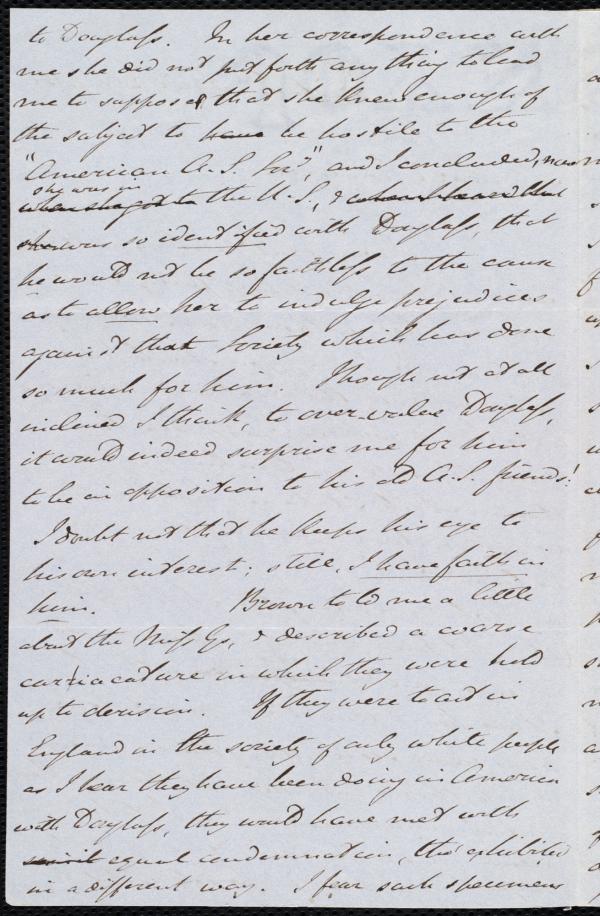 to Douglass. In her correspondence with
me she did not put forth any thing to lead
me to suppose that she knew enough of
the subject to have be hostile to the
"American A. S. Soc.y", and I concluded, now
she was in
when she got to the U. S., & when I heard that
she was so identified with Douglass, that
he would not be so faithless to the cause
as to allow her to indulge prejudices
against that Society which has done
so much for him. Though not at all
inclined I think, to over-value Douglass,
it would indeed surprise me for him
to be in opposition to his old A. S. friends!
I doubt not that he keeps his eye to
his own interest; still, I have faith in
him. Brown told me a little
about the Miss Gs, & described a coarse
carricature in which they were held
up to derision. If they were to act in
England in the society of only white people
as I hear they have been doing in America
with Douglass, they would have met with
equal condemnation, tho' exhibited
in a different way. I fear such specimens